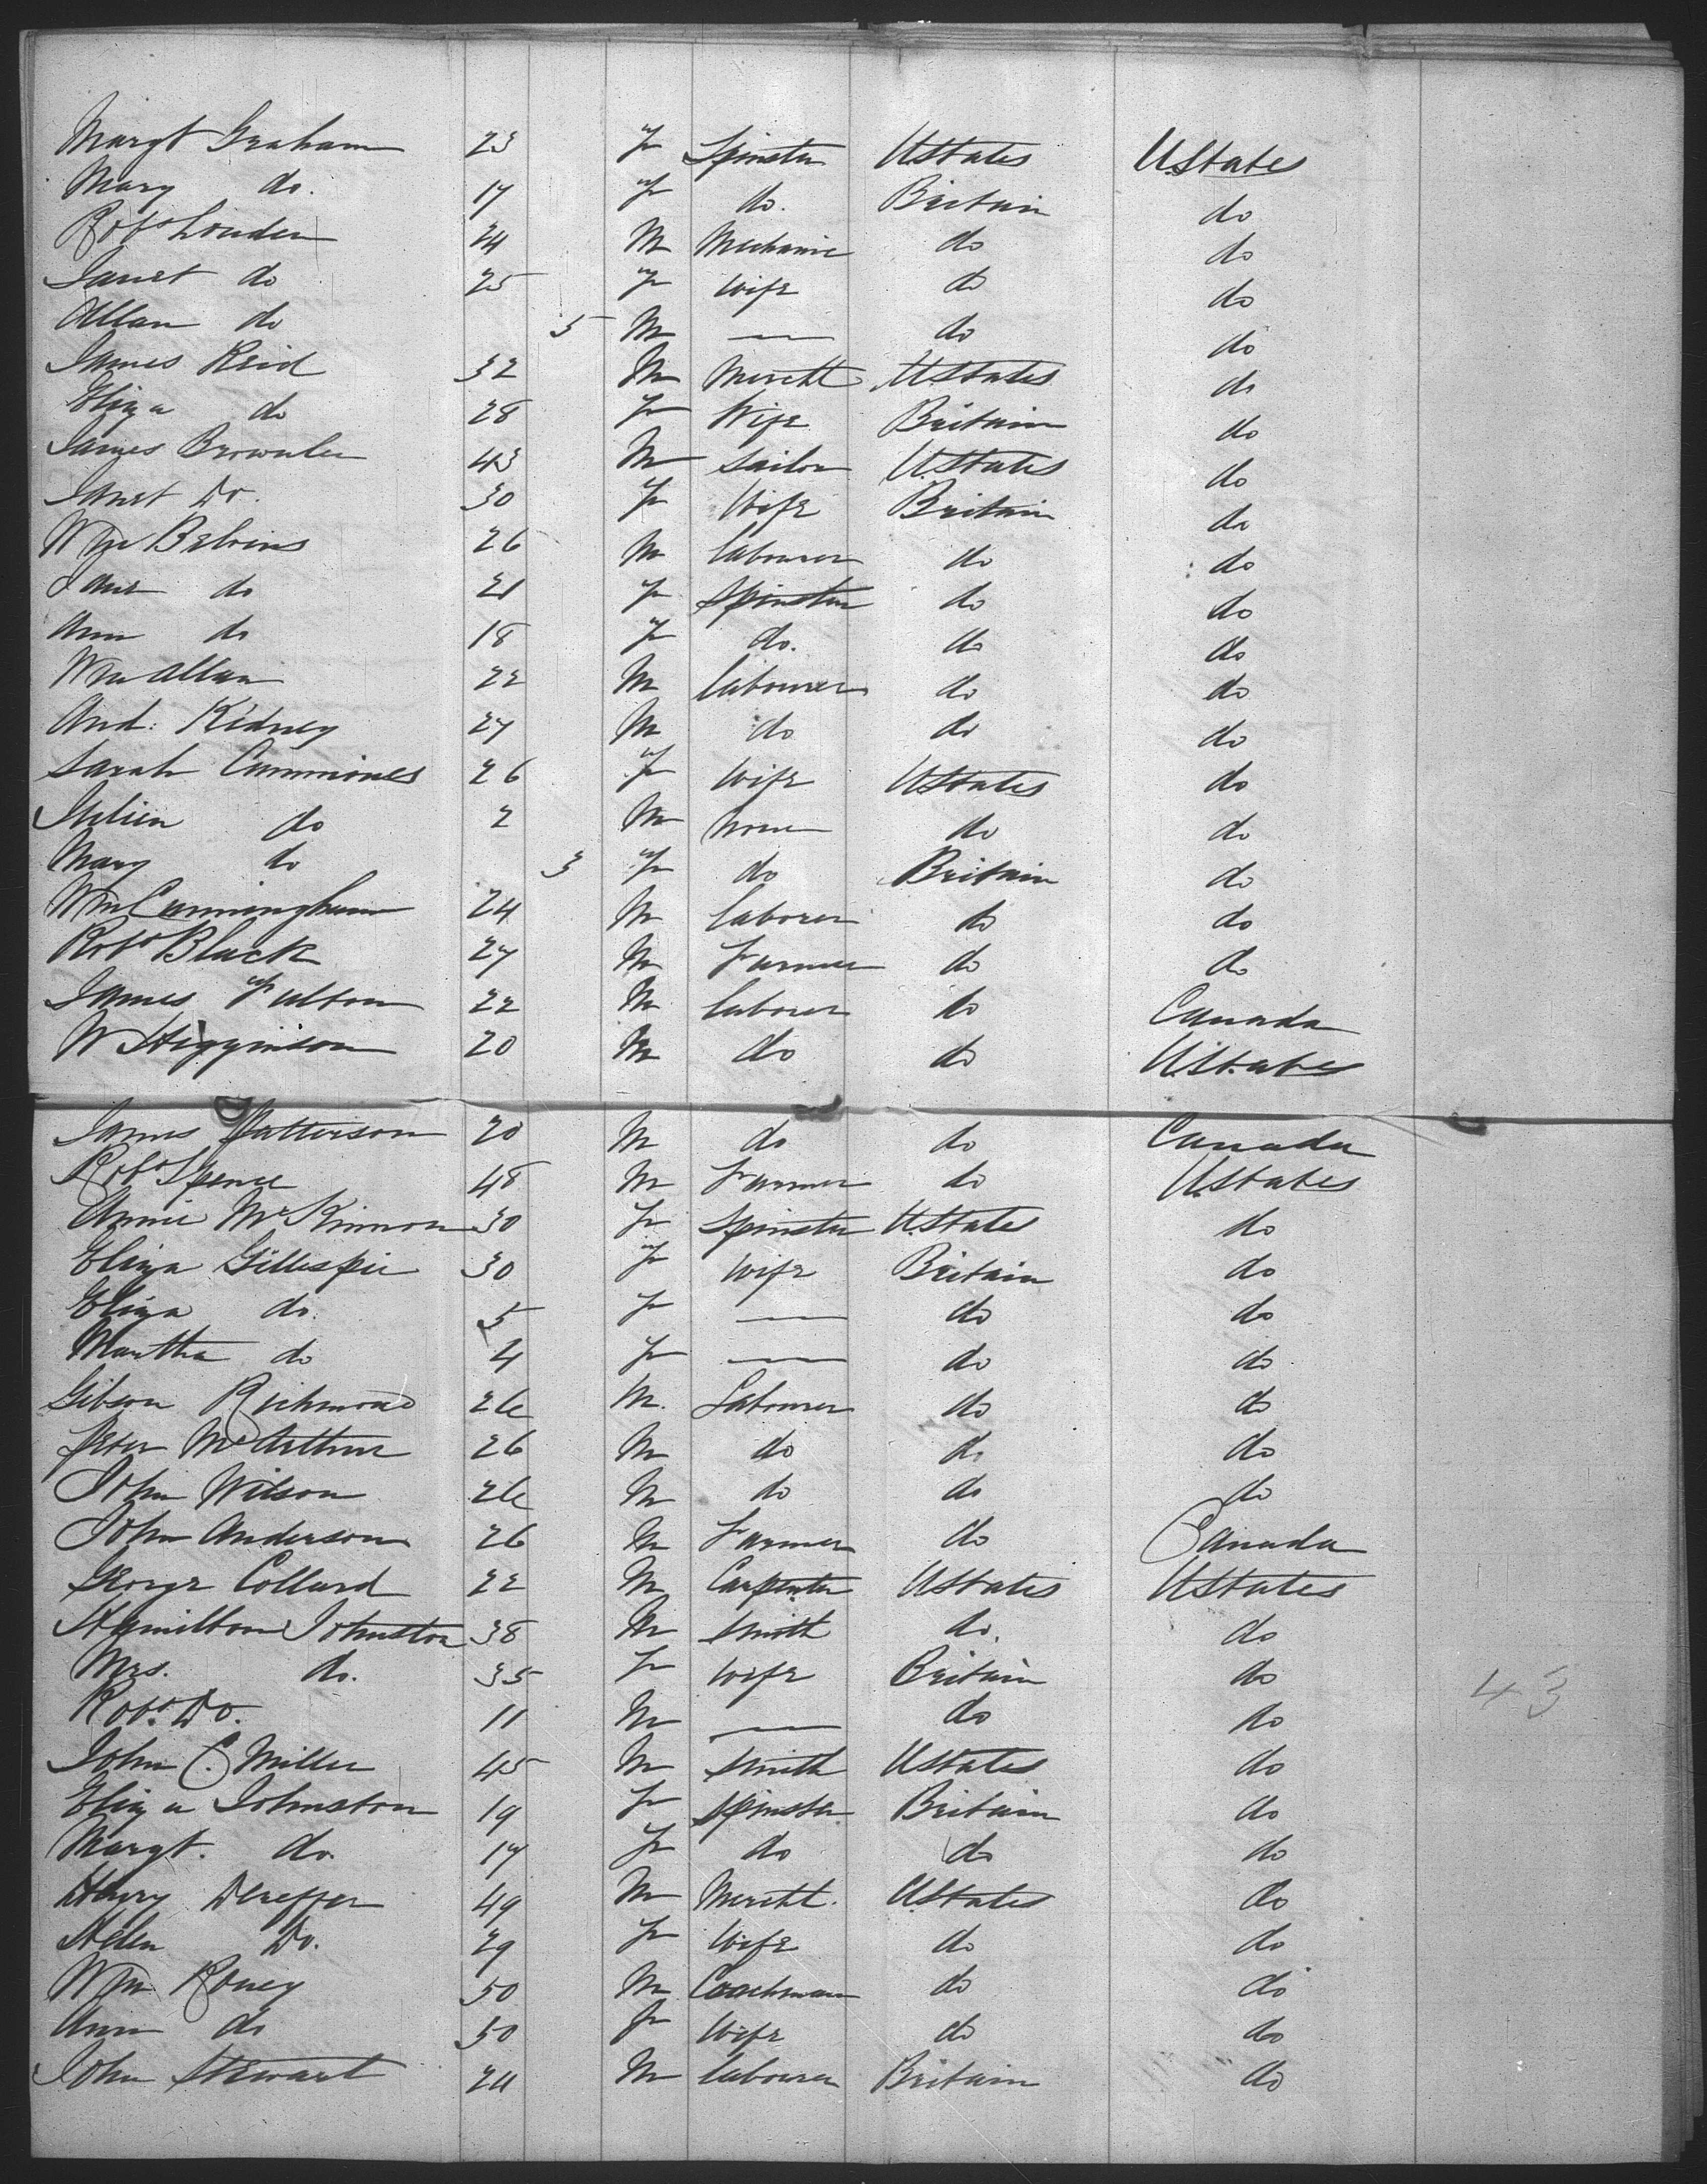 Margt Graham 23 F Spinster UStates UStates
Mary do. 17 F do. Britain do
Robt Louden 24 M Mechanic do do
Janet do 25 F Wife do do
Allan do 5 M — do do
James Reid 32 M Mercht UStates do
Eliza do 28 F Wife Britain do
James Brownlee 43 M Sailor UStates do
Janet Do. 30 F Wife Britain do
Wm 26 M labourer do do
Jane do 21 F Spinster do do
Ann do 18 F do. do do
Wm Allan 22 M labourer do do
And: Kidney 27 M do do do
Sarah 26 F Wife UStates do
do 2 M none do do
Mary do 3 F do Britain do
Wm Cunningham 24 M laborer do do
Robt Black 27 M Farmer do do
James Fulton 22 M laborer do Canada
W Higginson 20 M do do UStates
James Patterson 20 M do do Canada
Robt Spence 48 M Farmer do UStates
Annie McKinnon 30 F Spinster UStates do
Eliza Gillespie 30 F Wife Britain do
Eliza do. 5 F — do do
Martha do 4 F — do do
Gibson Richmond 26 M. Labourer do do
Peter McArthur 26 M do do do
John Wilson 26 M do do do
John Anderson 26 M Farmer do Canada
George Collard 22 M Carpenter UStates UStates
Hamilton Johnston 38 M Smith do. do
Mrs. do. 35 F Wife Britain do
Robt. Do. 11 M — do do
43
John C. Miller 45 M Smith UStates do
Eliza Johnston 19 F Spinster Britain do
Margt. do. 17 F do do do
Henry 49 M Mercht. UStates do
Helen Do. 29 F Wife do do
Wm Roney 50 M Coachman do do
Ann do 50 F Wife do do
John Stewart 24 M labourer Britain do